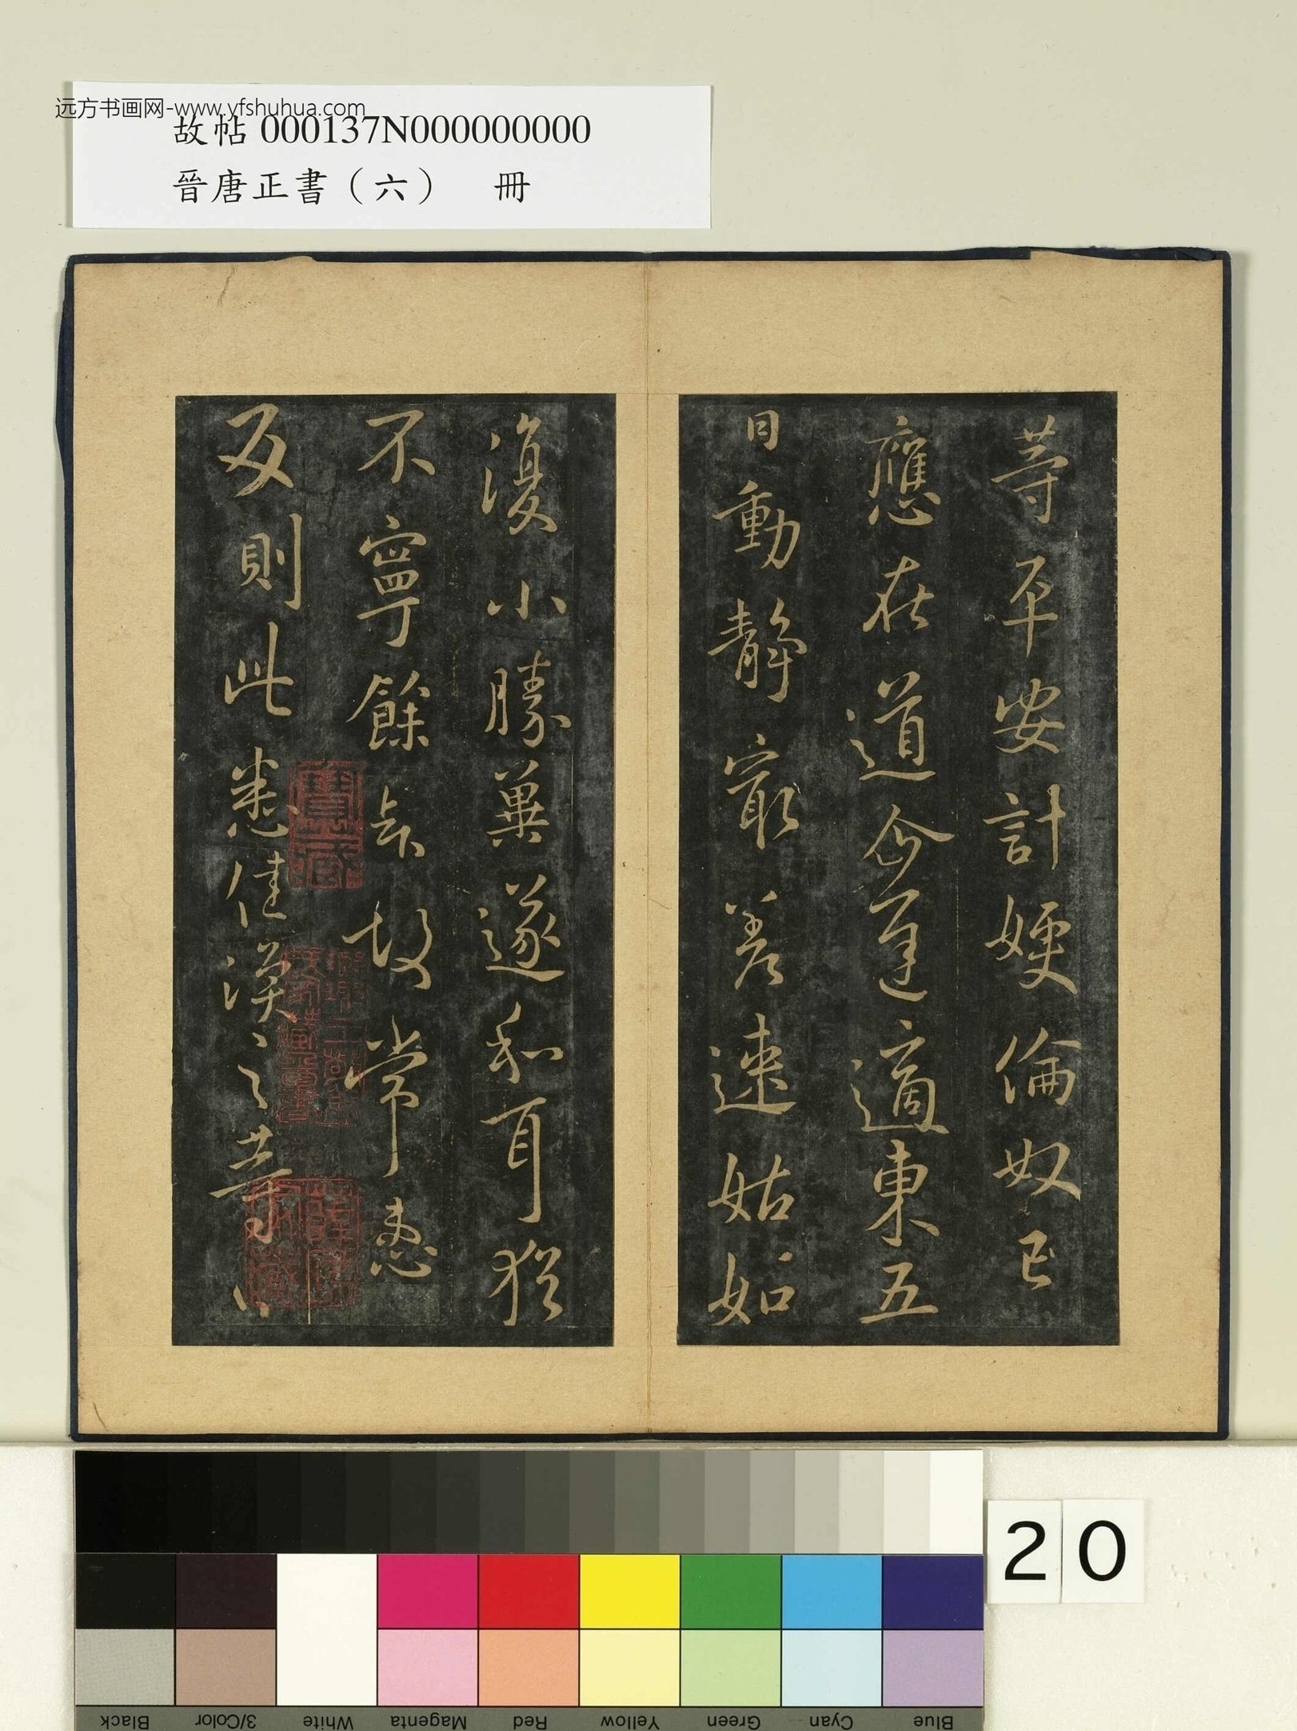 远方书画网-www.yfshuhua.com
故帖 000137N000000000
晉唐正書（六） 冊
等平安計媆倫奴已
應在道今適東五
目動靜最差速姑如
復小勝菓遂和耳猶
不寧餘故常患
反則此悉佳漢之等
20
Black
3/Color
White
Magenta
Red
Yellow
Green
Cyan
Blue